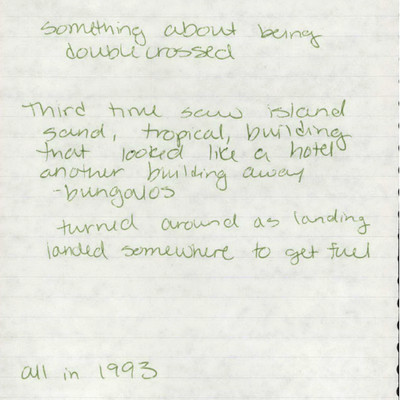 something about being
double crossed
Third time saw island
sand, tropical, building
that looked like a hotel
another building away
-bungalos
turned around as landing
landed somewhere to get fuel
all in 1993